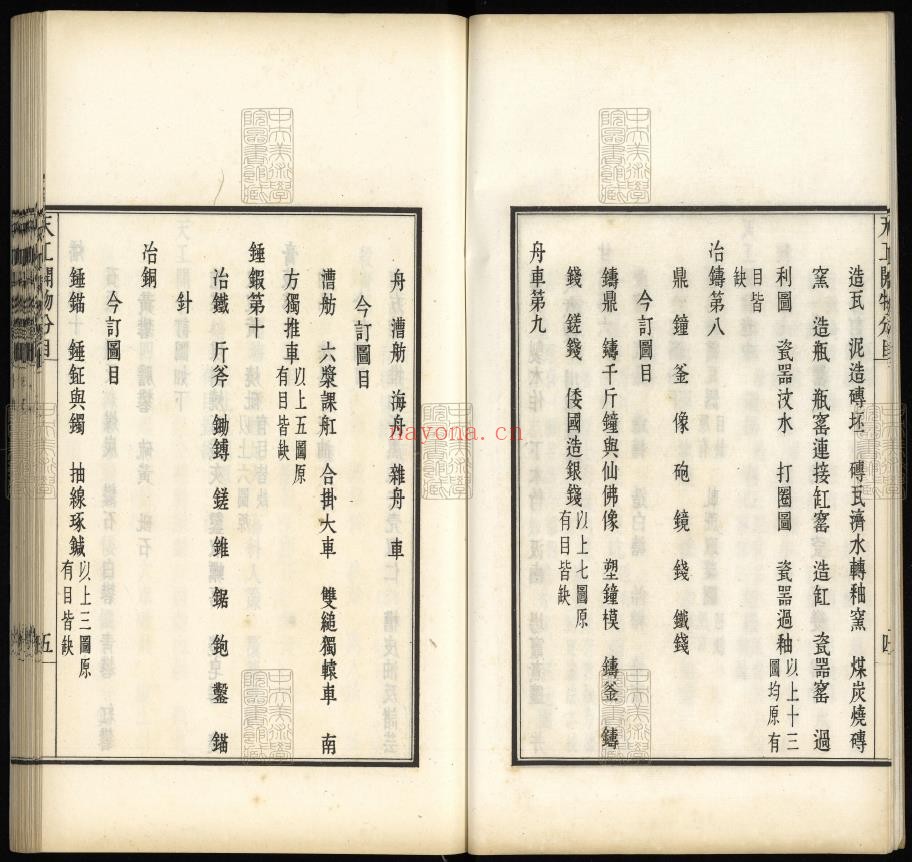 造瓦 泥造磚坯 磚瓦濟水轉釉窰 煤炭燒磚
窰 造瓶 瓶窰連接缸窰 造缸 瓷器窰 過
利圖 瓷器汶水 打圈圖 瓷器過釉 以上十三圖均原有
目皆缺
冶鑄第八
鼎 鐘 釜 像 砲 鏡 錢 鐵錢
今訂圖目
鑄鼎 鑄千斤鐘與仙佛像 塑鐘模 鑄釜 鑄
錢 鎈錢 倭國造銀錢 以上七圖原有目皆缺
舟車第九
天工開物分目
四
舟 漕舫 海舟 雜舟 車
今訂圖目
漕舫 六槳課舡 合掛大車 雙縋獨轅車 南
方獨推車 以上五圖原有目皆缺
錘鍛第十
冶鐵 斤斧 鋤鎛 鎈 錐 鋸 鉋 鑿 錨
針
冶銅
今訂圖目
錘錨 錘鉦與鐲 抽線琢鍼 以上三圖原有目皆缺
天工開物分目
五
中央美術學院圖書館藏
nayona.cn